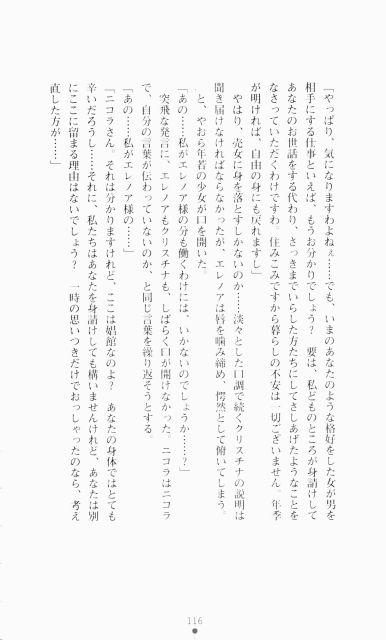 「やっぱり、気になりますわよねぇ……でも、いまのあなたのような格好をした女が男を
相手にする仕事といえば、もうお分かりでしょう？　要は、私どものところが身請けして
あなたのお世話をする代わり、さっきまでいらした方たちにしてさしあげたようなことを
なさっていただくわけですわ。住みこみですから暮らしの不安は一切ございません。年季
が明ければ、自由の身にも戻れますし」
やはり、売女に身を落とすしかないのか……淡々とした口調で続くクリスチナの説明は
聞き届けなければならなかったが、エレノアは唇を噛み締め、愕然として俯いてしまう。
と、やおら年若の少女が口を開いた。
「あの……私がエレノア様の分も働くわけには、いかないのでしょうか……？」
突飛な発言に、エレノアもクリスチナも、しばらく口が開けなかった。ニコラはニコラ
で、自分の言葉が伝わっていないのか、と同じ言葉を繰り返そうとする。
「あの……私がエレノア様の……」
「ニコラさん。それは分かりますけれど、ここは娼館なのよ？　あなたの身体ではとても
辛いだろうし……それに、私たちはあなたを身請けしても構いませんけれど、あなたは別
にここに留まる理由はないでしょう？　一時の思いつきだけでおっしゃったのなら、考え
直した方が……」
116